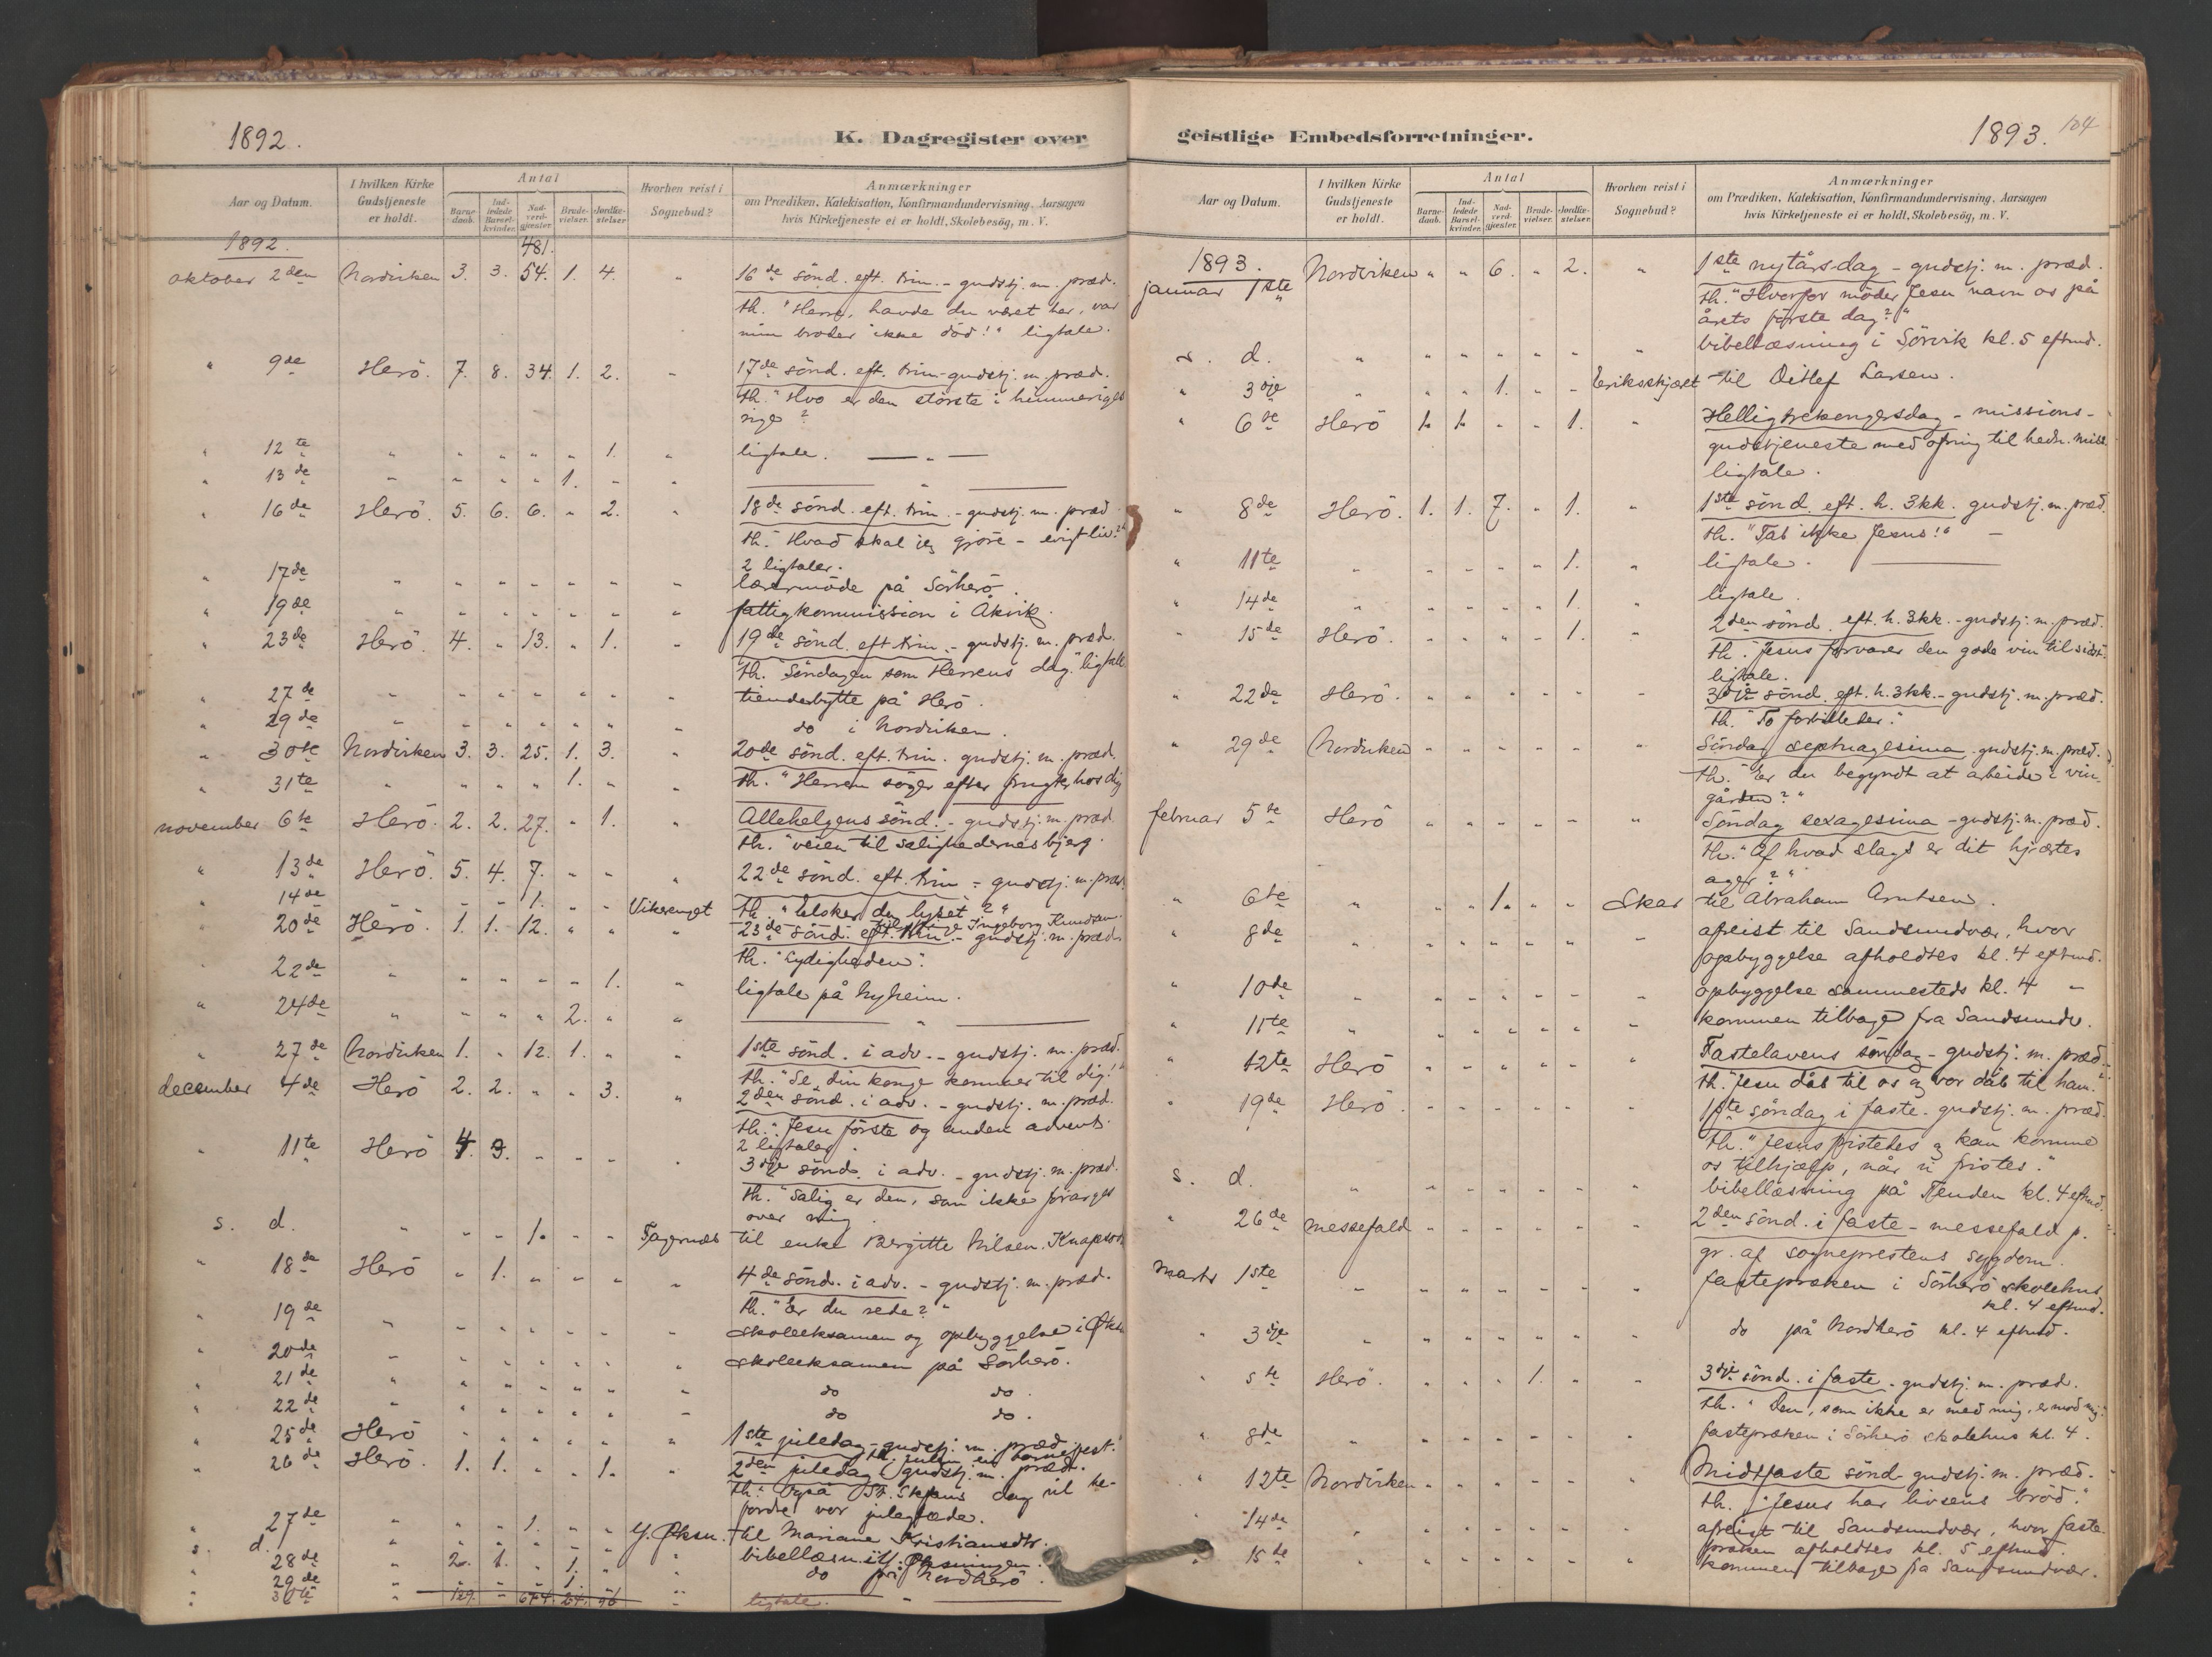 1892.
K. Dagregister over
Aar og Datum.
I hvilken Kirke Gudstjeneste er holdt.
Antal
Barne-daab.
Ind-ledede Barsel-kvinder.
Nad-verd-gjæster.
Brude-vielser.
Jordfæ-stelser.
Hvorhen reist i Sognebud?
Anmærkninger
om Prædiken, Katekisation, Konfirmandundervisning, Aarsagen
hvis Kirketjeneste ei er holdt, Skolebesög, m. V.
1892. 481.
oktober 2den Nordviken 3. 3. 54. 1. 4. " 16de sönd. eft. trin. - gudstj. m. præd.
th. "Herre, havde du været her, var
min broder ikke död!" ligtale.
" 9de Herö. 7. 8. 34. 1. 2. " 17de sönd. eft. trin - gudstj. m. præd.
th. "Hvo er den störste i himmeriges
rige?
" 12te " " " " " 1. " ligtale. — " —
" 13de " " " " 1. " " — " —
" 16de Herö. 5. 6. 6. " 2. " 18de sönd. eft. trin. - gudstj. m. præd
th. "Hvad skal jeg gjöre - evigt liv?"
2 ligtaler.
" 17de " " " " " " " lærermöde på Sörherö.
" 19de " " " " " " " fattigkommission i Åkvik.
" 23de Herö. 4. " 13. " 1. " 19de sönd. eft. trin. - gudstj. m. præd.
th. "Söndagen som Herrens dag." ligtale
" 27de " " " " " " " tiendebytte på Herö.
" 29de " " " " " " " do i Nordviken.
" 30te Nordviken 3. 3. 25. 1. 3. " 20de sönd. eft. trin. gudstj. m. præd.
" 31te " " " " 1. " " th. "Herren söger efter frugter hos dig
november 6te Herö. 2. 2. 27. " 1. " Allehelgens sönd. - gudstj. m. præd
th. "veien til salighedernes bjerg.
" 13de Herö. 5. 4. 7. " " " 22de sönd. eft. trin - gudstj. m. præd.
" 14de " " " 1. " " Vikerenget th. "Elsker du lyset?"
til pige Ingeborg Knudsen.
" 20de Herö. 1. 1. 12. " " " 23de sönd. eft. trin. - gudstj. m. præd.
th. "Lydigheden".
" 22de " " " " " 1. " ligtale på Nyheim.
" 24de " " " " 2. " " — " —
" 27de Nordviken 1. " 12. 1. " " 1ste sönd. i adv. - gudstj. m. præd.
th. "Se, din konge kommer til dig!"
december 4de Herö 2. 2. " " 3. " 2den sönd. i adv. - gudstj. m. præd.
th. "Jesu förste og anden advent.
2 ligtaler.
" 11te Herö 4. 3. " " " " 3dje sönd. i adv. - gudstj. m. præd.
th. "Salig er den, som ikke forarges
over mig.
s. d. " " " 1. " " Fagernes til enke Bergitte Nilsen.
" 18de Herö " 1. " " " " 4de sönd. i adv. - gudstj. m. præd.
th. "Er du rede?"
" 19de " " " " " " " skoleeksamen og opbyggelse i
" 20de " " " " " " " skoleeksamen på Sörherö.
" 21de " " " " " " " do do.
" 22de " " " " " " " do do.
" 25de Herö " " " " " " 1ste juledag - gudstj. m. præd.
th. julen en barnefest.
" 26de Herö. 1. 1. " " 1. " 2den juledag gudstj. m. præd.
th. "Også St. Stefans dag vil be-
fordre vor juleglæde.
" 27de " " " 1. " " Y. Øksn. til Mariane Kristiansdtr.
s. d. " " " " " " " bibellæsn. i Y. Øksningen.
" 28de " 2. 1. " 1. " " do på Nordherö.
" 29de " " " " 1. " "
" 30te " 129. " 674. 24. 56 " ligtale. "
geistlige Embedsforretninger.
1893. 104
Aar og Datum.
I hvilken Kirke Gudstjeneste er holdt.
Antal
Barne-daab.
Ind-ledede Barsel-kvinder.
Nad-verd-gjæster.
Brude-vielser.
Jordfæ-stelser.
Hvorhen reist i Sognebud?
Anmærkninger
om Prædiken, Katekisation, Konfirmandundervisning, Aarsagen
hvis Kirketjeneste ei er holdt, Skolebesög, m. V.
1893.
januar 1ste Nordviken " " 6. " 2. " 1ste nytårsdag - gudstj. m. præd.
th. "Hvorfor möder Jesu navn os på
årets förste dag?"
s. d. " " " " " " " bibellæsning i Sörvik kl. 5 eftmd.
" 3dje " " " 1. " " Eriksskjæret til Ditlef Larsen.
" 6te Herö 1. 1. " " 1. " Hellig trekongersdag - missions-
gudstjeneste med ofring til hedn. miss.
ligtale.
" 8de Herö. 1. 1. 7. " 1. " 1ste sönd. eft. h. 3kk. gudstj. m. præd.
th. "Tab ikke Jesus!" -
" 11te " " " " " 1. " ligtale. —
" 14de " " " " " 1. " ligtale.
" 15de Herö. " " " " 1. " 2den sönd. eft. h. 3kk. - gudstj. m. præd.
th. "Jesus forvarer den gode vin til sidst."
ligtale.
" 22de Herö. " " " " " " 3dje sönd. eft. h. 3kk. - gudstj. m. præd.
th. "To forbilleder."
" 29de Nordviken " " " " " " Söndag septuagesima. gudstj. m. præd.
th. "Er du begyndt at arbeide i vin-
gården?"
februar 5te Herö " " " " " " Söndag sexagesima - gudstj. m. præd.
th. "Af hvad slags er dit hjertes
ager?"
" 6te " " " 1. " " Skar til Abraham Arntsen.
" 8de " " " " " " " afreist til Sandsundvær, hvor
opbyggelse afholdtes kl. 4 eftmd.
" 10de " " " " " " " opbyggelse sammesteds kl. 4 "
" 11te " " " " " " " kommen tilbage fra Sandsundv.
" 12te Herö " " " " " " Fastelavens söndag - gudstj. m. præd.
th. "Jesu dåb til os og vor dåb til ham."
" 19de Herö. " " " " " " 1ste söndag i faste. gudstj. m. præd.
th. "Jesus fristedes og kan komme
os tilhjælp, når vi fristes."
s. d. " " " " " " " bibellæsning på Tenden kl. 4 eftmd.
" 26de messefald " " " " " " 2den sönd. i faste - messefald p.
gr. af sogneprestens sygdom.
marts 1ste " " " " " " " fastepræken i Sörherö skolehus
kl. 4 eftmd.
" 3dje " " " " " " " do på Nordherö kl. 4 eftmd.
" 5te Herö. " " " 1. " " 3dje sönd. i faste. gudstj. m. præd.
th. "Den, som ikke er med mig, er mod mig."
" 8de " " " " " " " fastepræken i Sörherö skolehus kl. 4.
" 12te Nordviken " " " " " " Midtfaste sönd. gudstj. m. præd.
th. "Jesus har livsens bröd."
" 14de " " " " " " " afreist til Sandsundvær, hvor faste-
præken afholdtes kl. 5 eftmd.
" 15de " " " " " " " kommen tilbage fra Sandsundvær.